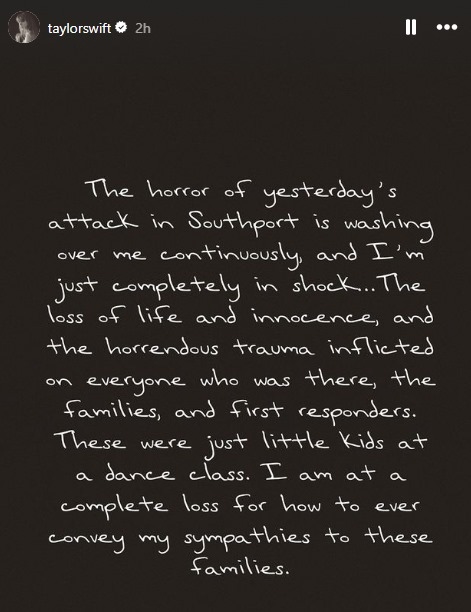 taylorswift 2h
The horror of yesterday's
attack in Southport is washing
over me continuously, and I'm
just completely in shock...The
loss of life and innocence, and
the horrendous trauma inflicted
on everyone who was there, the
families, and first responders.
These were just little kids at
a dance class. I am at a
complete loss for how to ever
convey my sympathies to these
families.